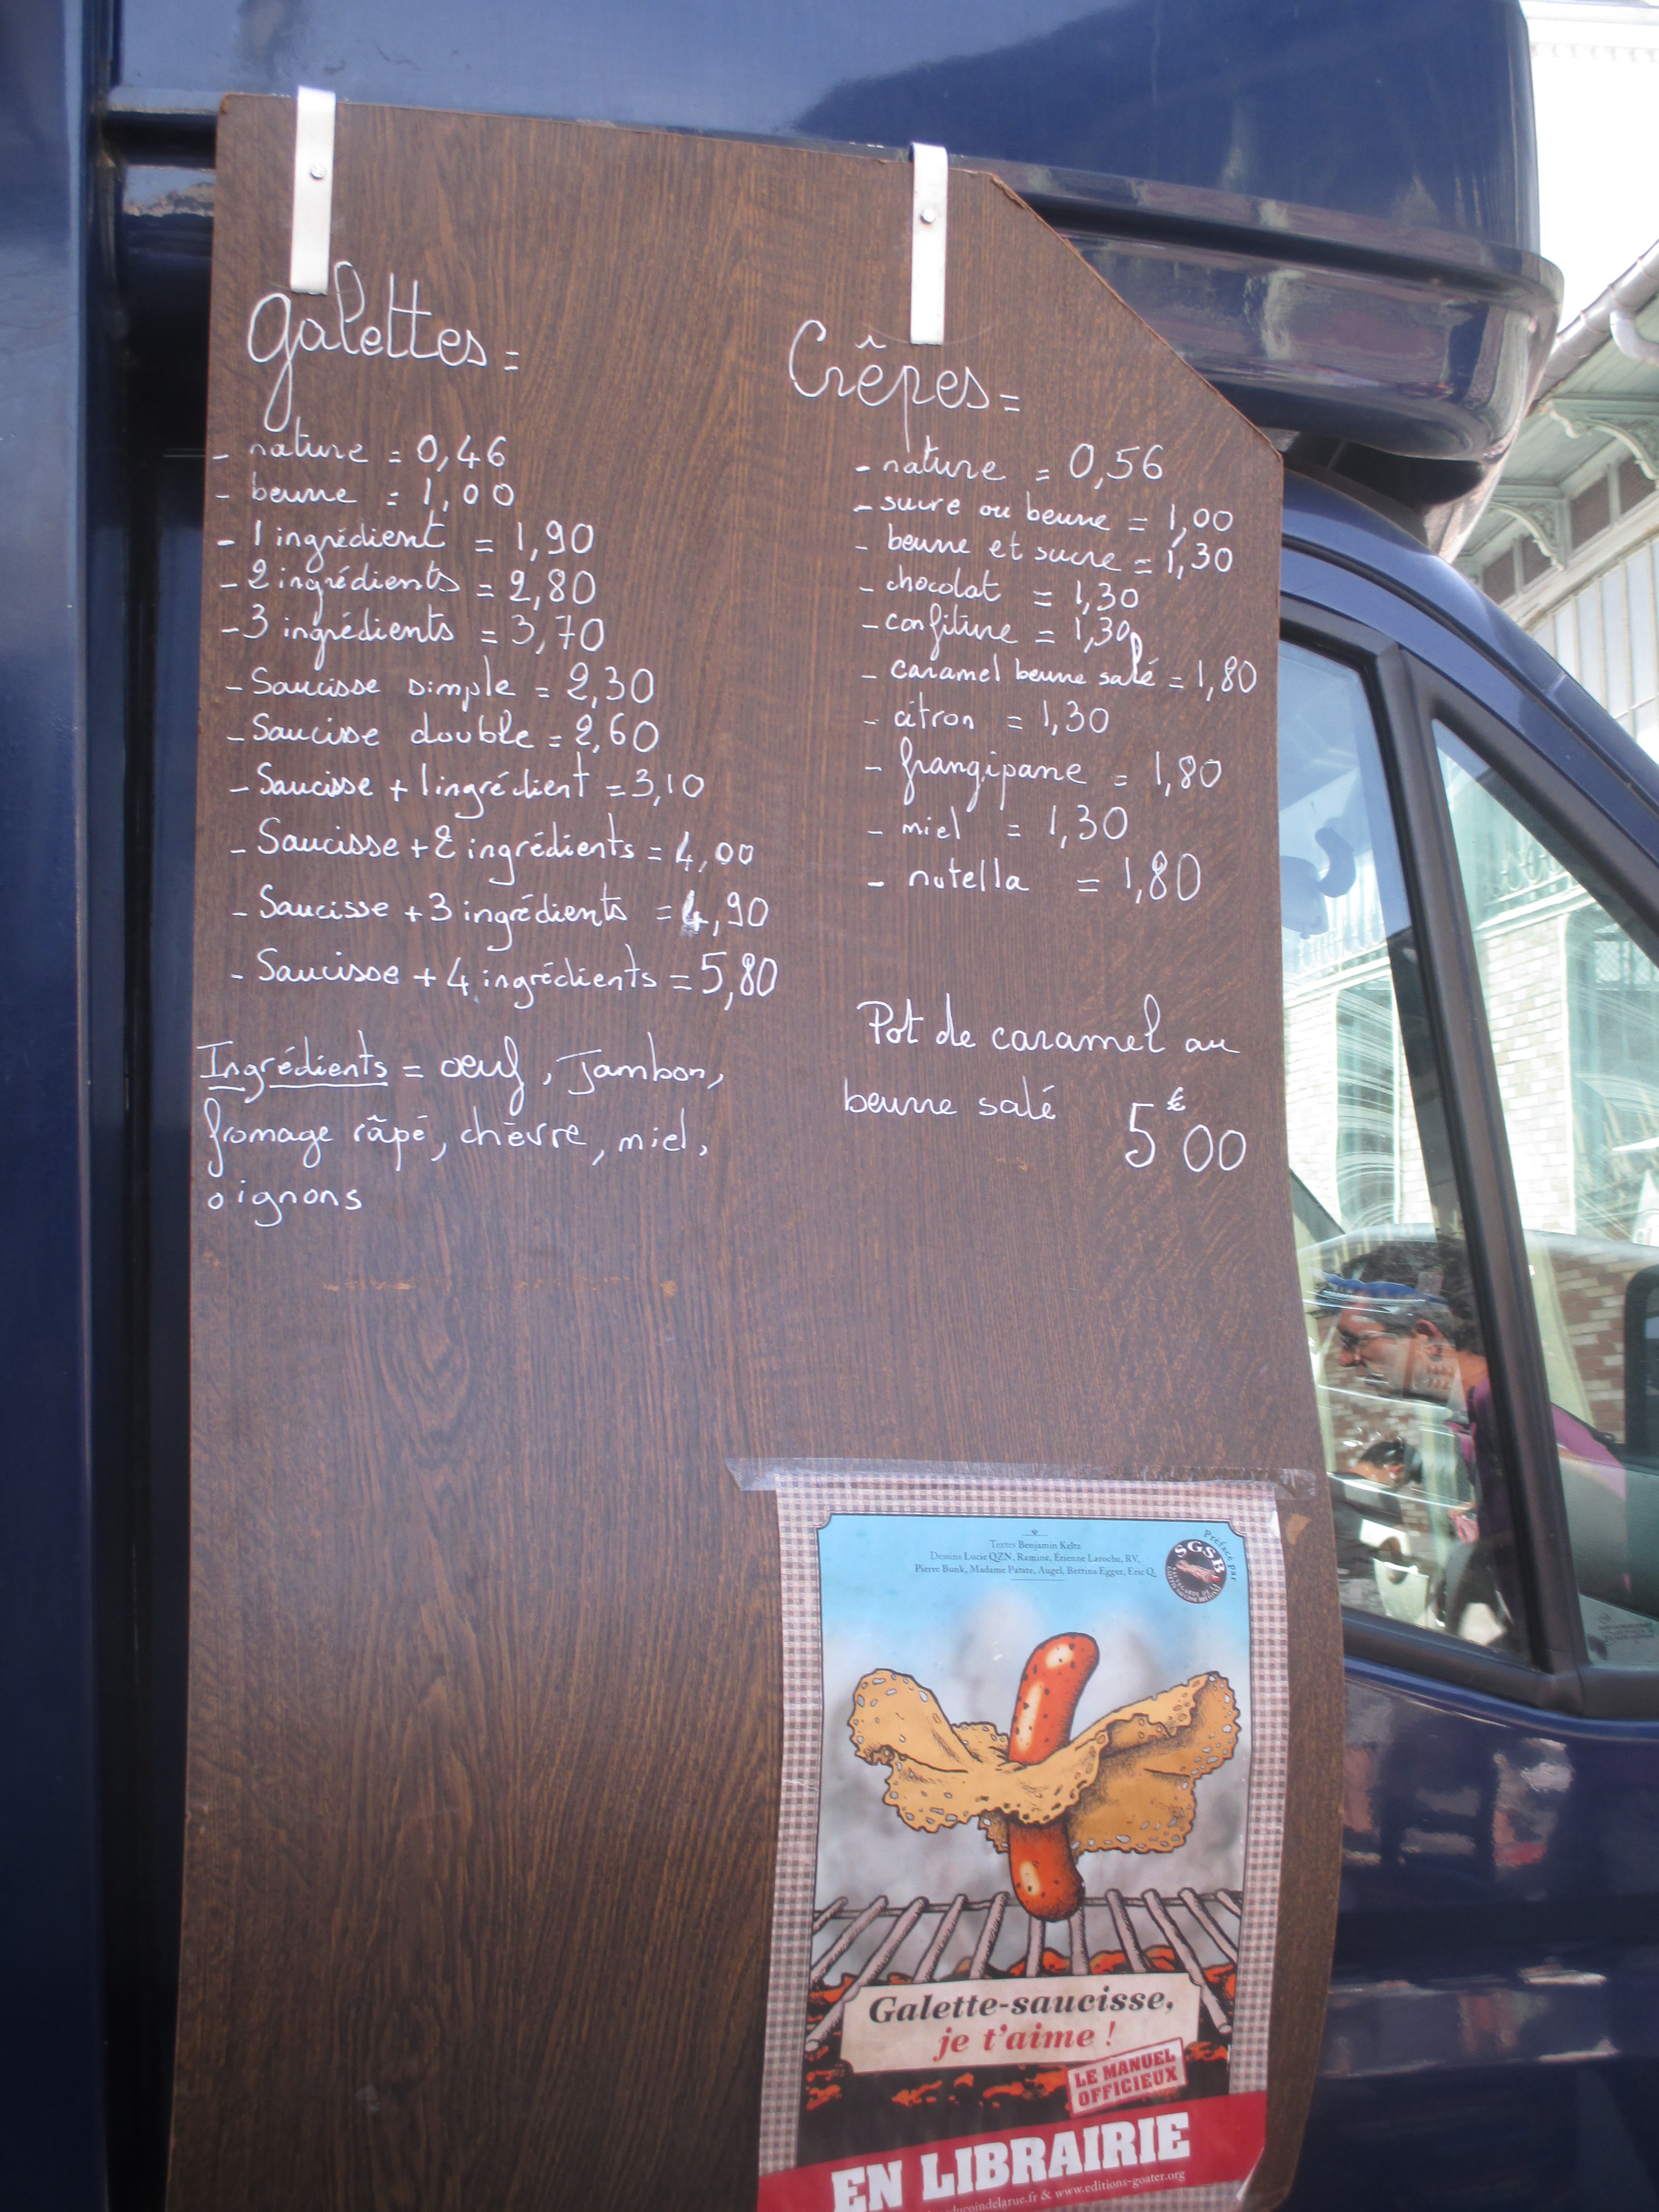 galettes =
- nature = 0,46
- beurre = 1,00
- 1 ingrédient = 1,90
- 2 ingrédients = 2,80
- 3 ingrédients = 3,70
- Saucisse simple = 2,30
- Saucisse double = 2,60
- Saucisse + 1 ingrédient = 3,10
- Saucisse + 2 ingrédients = 4,00
- Saucisse + 3 ingrédients = 4,90
- Saucisse + 4 ingrédients = 5,80
Ingrédients = oeuf, Jambon,
fromage râpé, chèvre, miel,
oignons
Crêpes =
- nature = 0,56
- sucre ou beurre = 1,00
- beurre et sucre = 1,30
- chocolat = 1,30
- confiture = 1,30
- caramel beurre salé = 1,80
- citron = 1,30
- frangipane = 1,80
- miel = 1,30
- nutella = 1,80
Pot de caramel au
beurre salé 5€00
Textes Benjamin Keltz
Dessins Lucie QZN, Ramine, Étienne Laroche, RV,
Pierre Bunk, Madame Patate, Augel, Bettina Egger, Eric Q.
Préface par
SGSB
Galette-saucisse,
je t'aime !
LE MANUEL
OFFICIEUX
EN LIBRAIRIE
& www.editions-goater.org